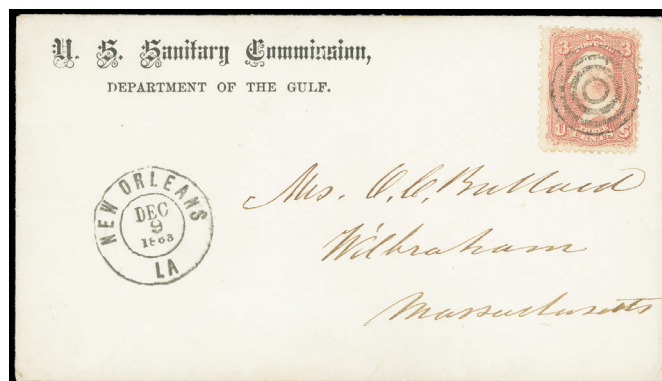 U. S. Sanitary Commission,
DEPARTMENT OF THE GULF.
3 U.S. POSTAGE 3
U THREE CENTS S
NEW ORLEANS
DEC
9
1863
LA
Mrs. O. C. Bullard
Wilbraham
Massachusetts